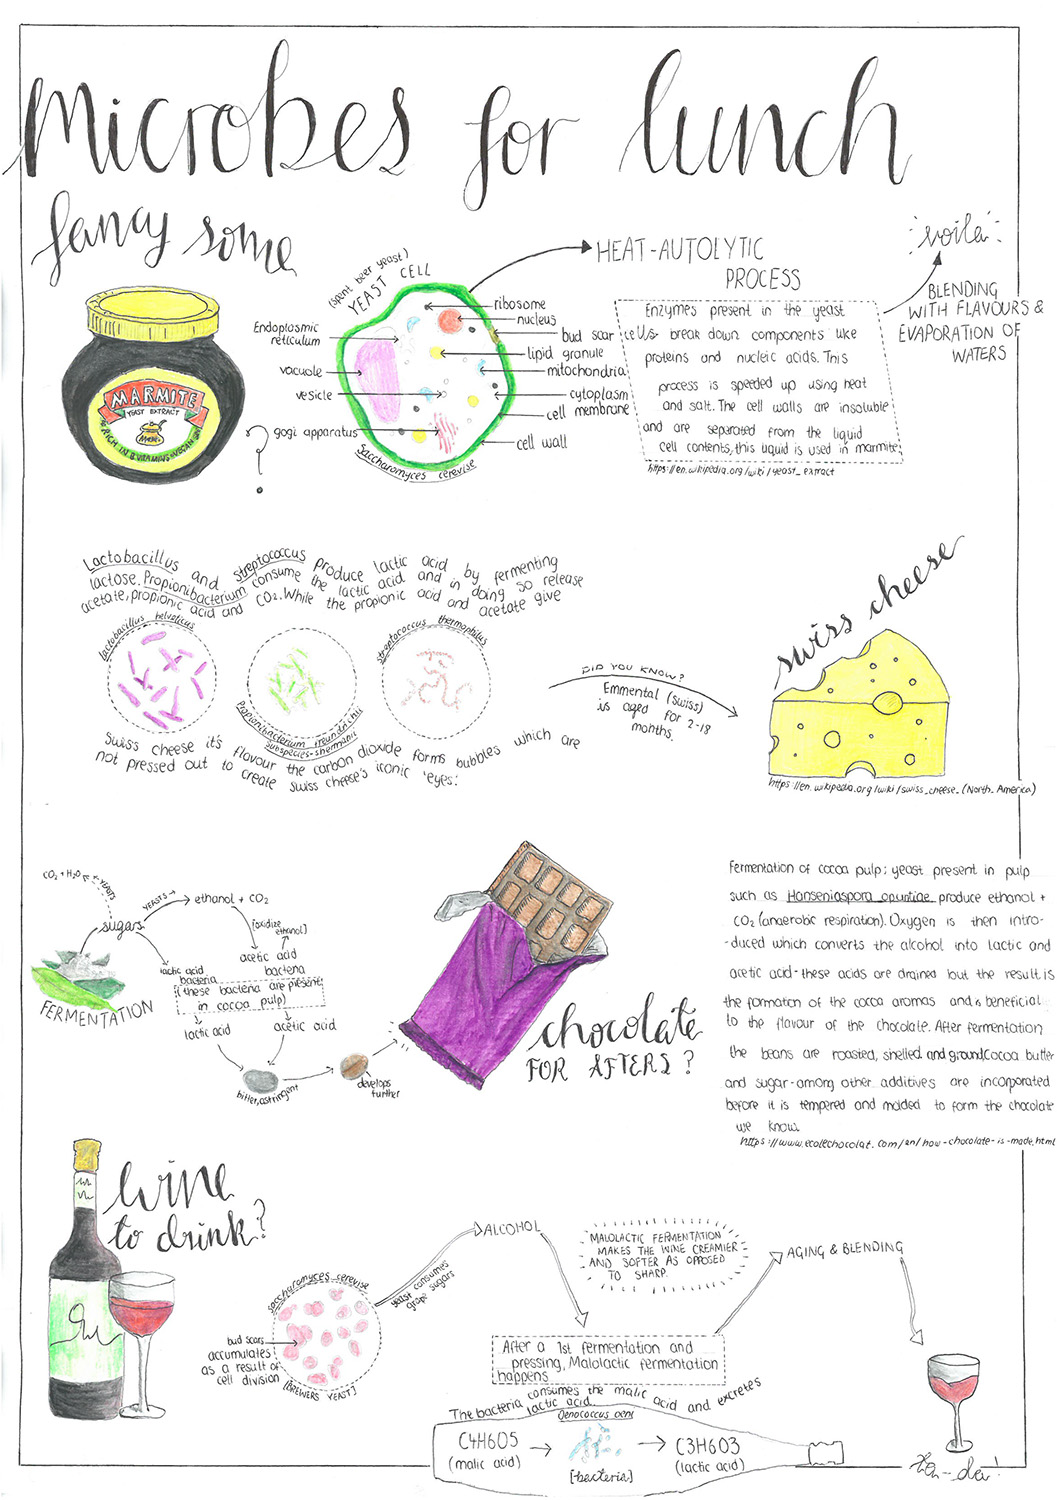 Microbes for lunch
fancy some
MARMITE
YEAST EXTRACT
RICH IN B VITAMINS
VEGAN
(spent beer yeast)
YEAST CELL
Endoplasmic
reticulum
vacuole
vesicle
gogi apparatus
ribosome
nucleus
bud scar
lipid granule
mitochondria
cytoplasm
cell membrane
cell wall
Saccharomyces cerevise
?
HEAT-AUTOLYTIC
PROCESS
Enzymes present in the yeast
cells break down components like
proteins and nucleic acids. This
process is speeded up using heat
and salt. The cell walls are insoluble
and are separated from the liquid
cell contents, this liquid is used in marmite.
https://en.wikipedia.org/wiki/yeast_extract
voila!
BLENDING
WITH FLAVOURS &
EVAPORATION OF
WATERS
Lactobacillus and Streptococcus produce lactic acid by fermenting
lactose. Propionibacterium consume the lactic acid and in doing so release
acetate, propionic acid and CO2. While the propionic acid and acetate give
Lactobacillus helveticus
Propionibacterium freundrichii
subspecies-shermanii
streptococcus thermophilus
Swiss cheese it's flavour the carbon dioxide forms bubbles which are
not pressed out to create swiss cheese's iconic 'eyes'.
DID YOU KNOW?
Emmental (swiss)
is aged for 2-18
months.
swiss cheese
https://en.wikipedia.org/wiki/swiss_cheese_(North_America)
CO2 + H2O
YEASTS
sugars
YEASTS
ethanol + CO2
[oxidize
ethanol]
acetic acid
bacteria
lactic acid
bacteria
(these bacteria are present
in cocoa pulp)
FERMENTATION
lactic acid
acetic acid
bitter, astringent
develops
further
chocolate
FOR AFTERS?
Fermentation of cocoa pulp; yeast present in pulp
such as Hanseniaspora opuntiae produce ethanol +
CO2 (anaerobic respiration). Oxygen is then intro-
-duced which converts the alcohol into lactic and
acetic acid - these acids are drained but the result is
the formation of the cocoa aromas and is beneficial
to the flavour of the chocolate. After fermentation
the beans are roasted, shelled and ground, cocoa butter
and sugar - among other additives are incorporated
before it is tempered and molded to form the chocolate
we know.
https://www.ecolechocolat.com/en/how-chocolate-is-made.html
wine
to drink?
saccharomyces cerevise
bud scars
accumulates
as a result of
cell division
[BREWERS YEAST]
yeast consumes
grape sugars
ALCOHOL
MALOLACTIC FERMENTATION
MAKES THE WINE CREAMIER
AND SOFTER AS OPPOSED
TO SHARP.
AGING & BLENDING
After a 1st fermentation and
pressing, Malolactic fermentation
happens
The bacteria consumes the malic acid and excretes
lactic acid.
Oenococcus oeni
C4H6O5
(malic acid)
[bacteria]
C3H6O3
(lactic acid)
ta-da!